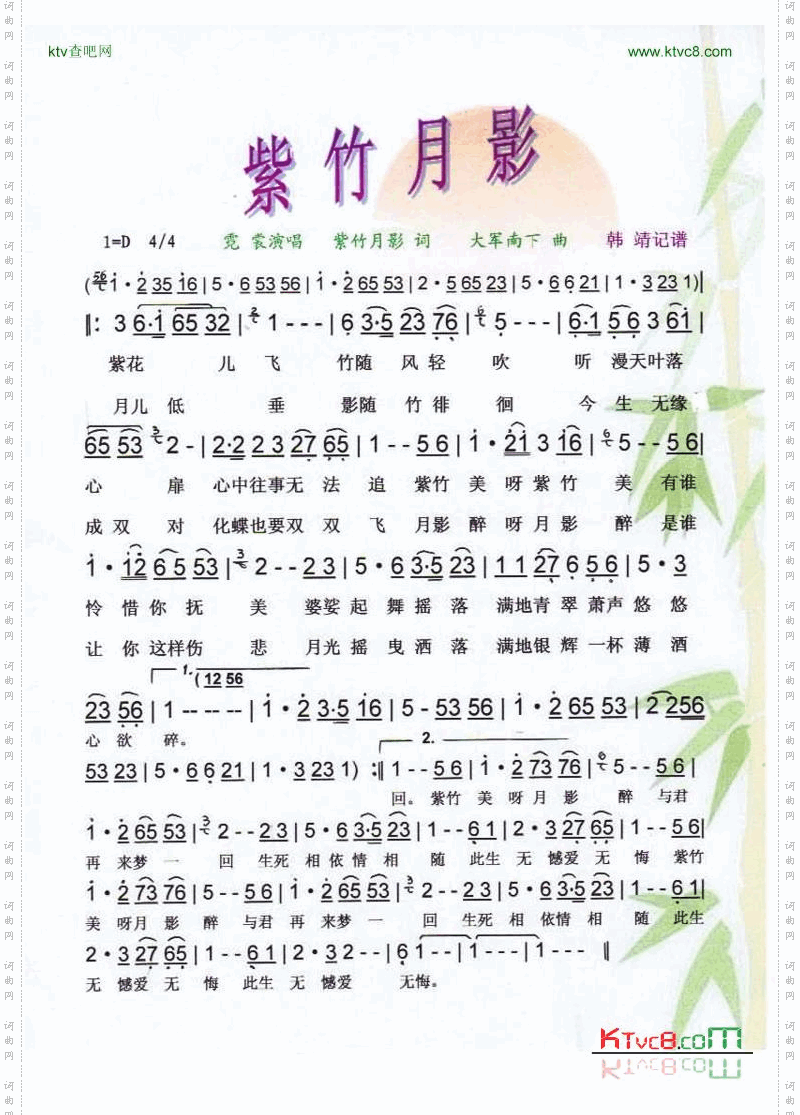 ktv查吧网 www.ktvc8.com
紫竹月影
1=D 4/4 霓 裳演唱 紫竹月影 词 大军南下 曲 韩 靖记谱
(56 i·2 35 16 | 5·6 53 56 | i·2 65 53 | 2·5 65 23 | 5·6 6 21 | 1·3 23 1)||
||: 3 6·i 65 32 | 2 1 - - - | 6 3·5 23 76 | 6 5 - - - | 6·1 5 6 3 6i |
紫花 儿 飞 竹随 风 轻 吹 听 漫天叶落
月儿 低 垂 影随 竹 徘 徊 今 生 无缘
65 53 3 2 - | 2·2 2 3 27 65 | 1 - - 5 6 | i· 2i 3 i6 | 6 5 - - 5 6 |
心 扉 心中往事无 法 追 紫竹 美 呀紫 竹 美 有谁
成 双 对 化蝶也要双 双 飞 月影 醉 呀月 影 醉 是谁
i· i2 6 5 53 | 3 2 - - 2 3 | 5·6 3·5 23 | 1 1 27 6 5 6 | 5·3
怜 惜 你 抚 美 婆娑 起 舞 摇 落 满地青 翠 萧声 悠 悠
让 你 这样伤 悲 月光 摇 曳 洒 落 满地银 辉 一杯 薄 酒
1. (12 56
23 56 | 1 -- -- -- | i·2 3·5 i6 | 5 - 53 56 | i·2 65 53 | 2 256
心 欲 碎。
2.
53 23 | 5·6 6 21 | 1·3 23 1) :|| 1 - - 5 6 | i·2 73 76 | 6 5 - - 5 6 |
回。 紫竹 美 呀 月 影 醉 与君
i·2 65 53 | 3 2 - - 2 3 | 5·6 3·5 23 | 1 - - 6 1 | 2·3 27 65 | 1 - - 5 6 |
再 来梦 一 回 生死 相 依情 相 随 此生 无 憾爱 无 悔 紫竹
i·2 73 76 | 5 - - 5 6 | i·2 65 53 | 3 2 - - 2 3 | 5·6 3·5 23 | 1 - - 6 1 |
美 呀月 影 醉 与君 再 来梦 一 回 生死 相 依情 相 随 此生
2·3 27 65 | 1 - - 6 1 | 2·3 2 - - | 6 1 - - | 1 - - - | 1 - - - ||
无 憾爱 无 悔 此生 无 憾爱 无悔。
KTvc8.coM
词曲网